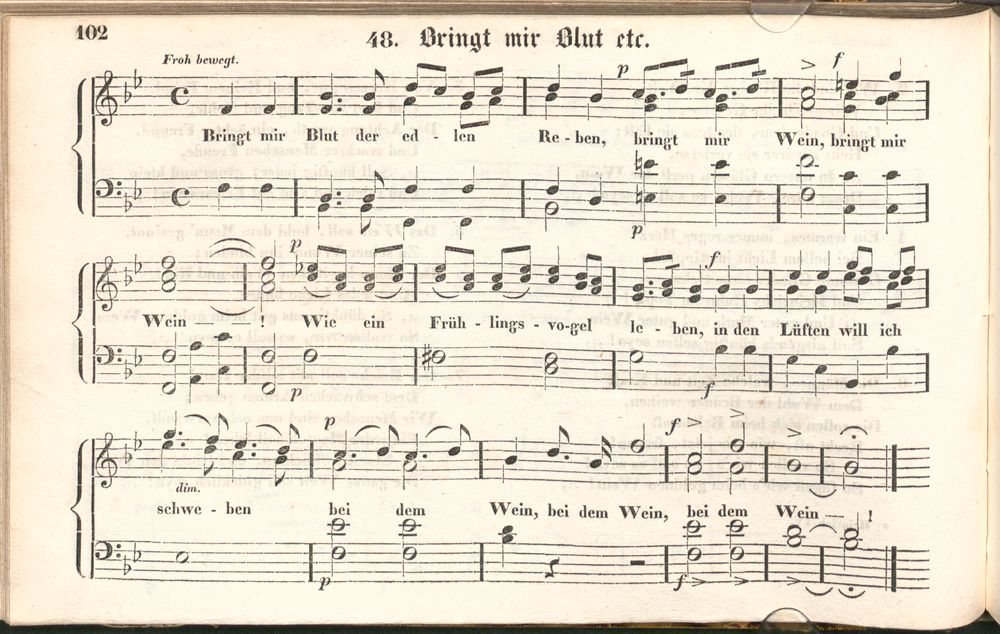 102
48. Bringt mir Blut etc.
Froh bewegt.
p
f
Bringt mir Blut der ed - len Re - ben, bringt mir Wein, bringt mir
p
p
f
Wein — ! Wie ein Früh - lings - vo - gel le - ben, in den Lüften will ich
p
f
p
f
dim.
schwe - ben bei dem Wein, bei dem Wein, bei dem Wein — !
p
f